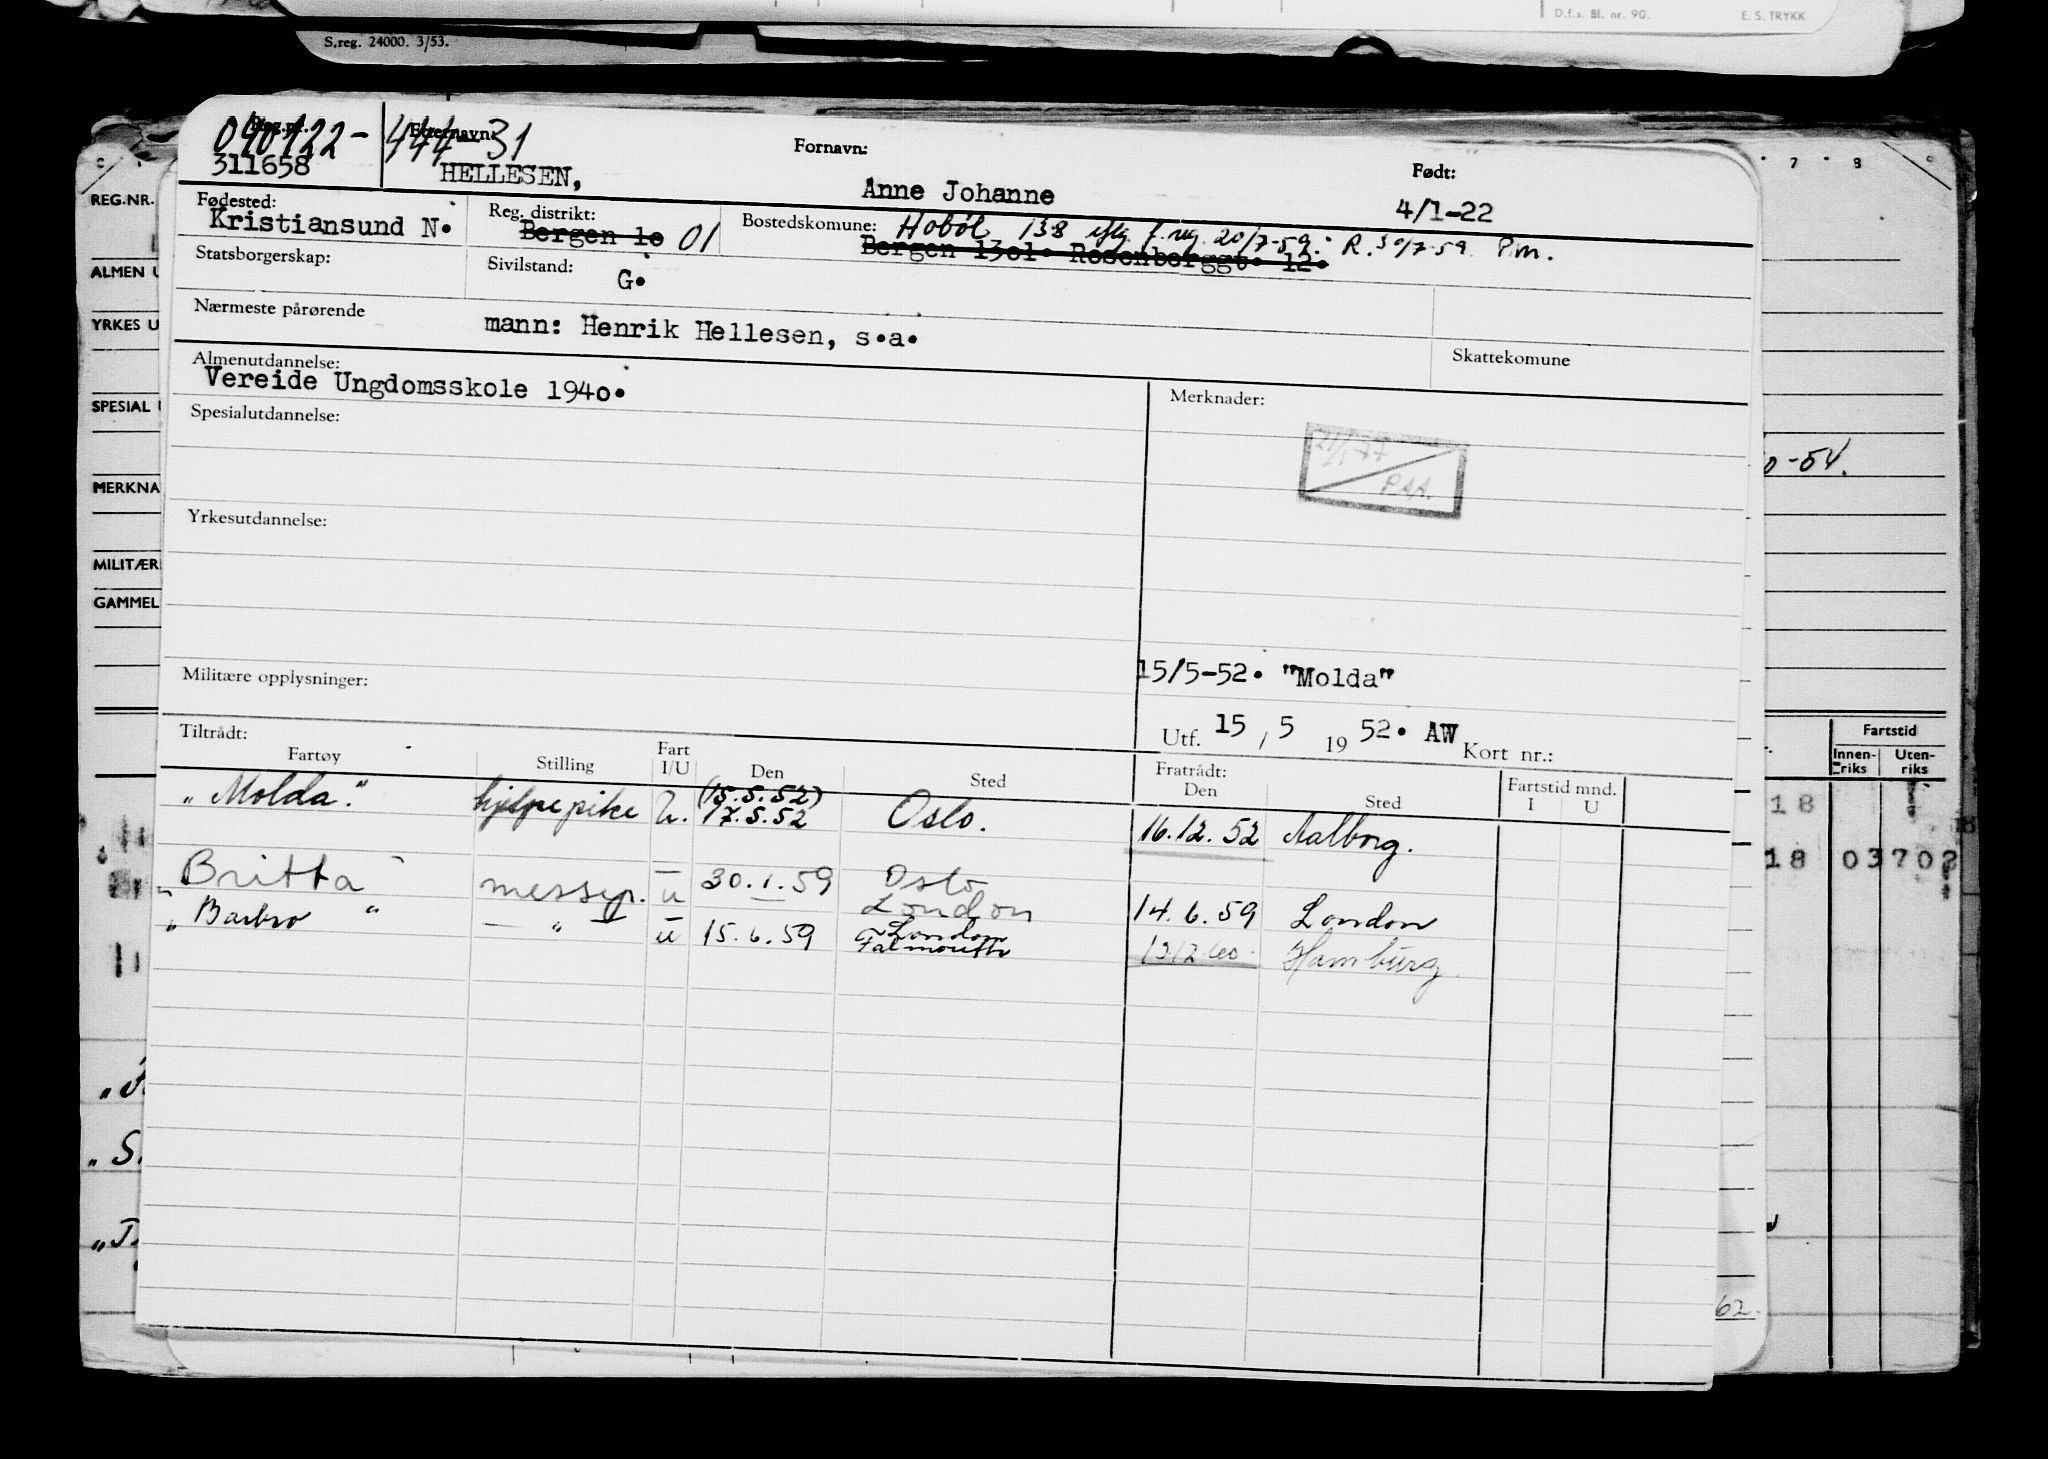 D.f.s. Bl. nr. 90. E. S. TRYKK
S.reg. 24000. 3/53.
040122-44431
Etternavn: Fornavn: Født:
311658 HELLESEN, Anne Johanne 4/1-22
Fødested: Reg. distrikt: Bostedskomune:
Kristiansund N. Bergen 1o 01 Hobøl 138 iflg. f. reg. 20/7-59. R. 30/7-59. P.m.
Bergen 13o1. Rosenberggt. 12.
Statsborgerskap: Sivilstand: G.
Nærmeste pårørende mann: Henrik Hellesen, s.a.
Skattekomune
Almenutdannelse:
Vereide Ungdomsskole 194o.
Merknader:
Spesialutdannelse:
21/1-77
PAA.
Yrkesutdannelse:
Militære opplysninger:
15/5-52. "Molda"
Utf. 15 / 5 19 52. AW Kort nr.:
Tiltrådt: Fratrådt:
Fartøy Stilling Fart I/U Den Sted Den Sted Fartstid mnd. I U
"Molda" hjelpepike U. (15.5.52) 17.5.52 Oslo. 16.12.52 Aalborg.
"Britta" messep. u 30.1.59 Oslo London 14.6.59 London
"Barbro" — " — u 15.6.59 London Falmouth 13.12.60. Hamburg.
REG.NR.
ALMEN U
YRKES U
SPESIAL U
MERKNA
MILITÆR
GAMMEL
7 8 9
0-54.
Fartstid
Innenriks Utenriks
18
18 03702
62.